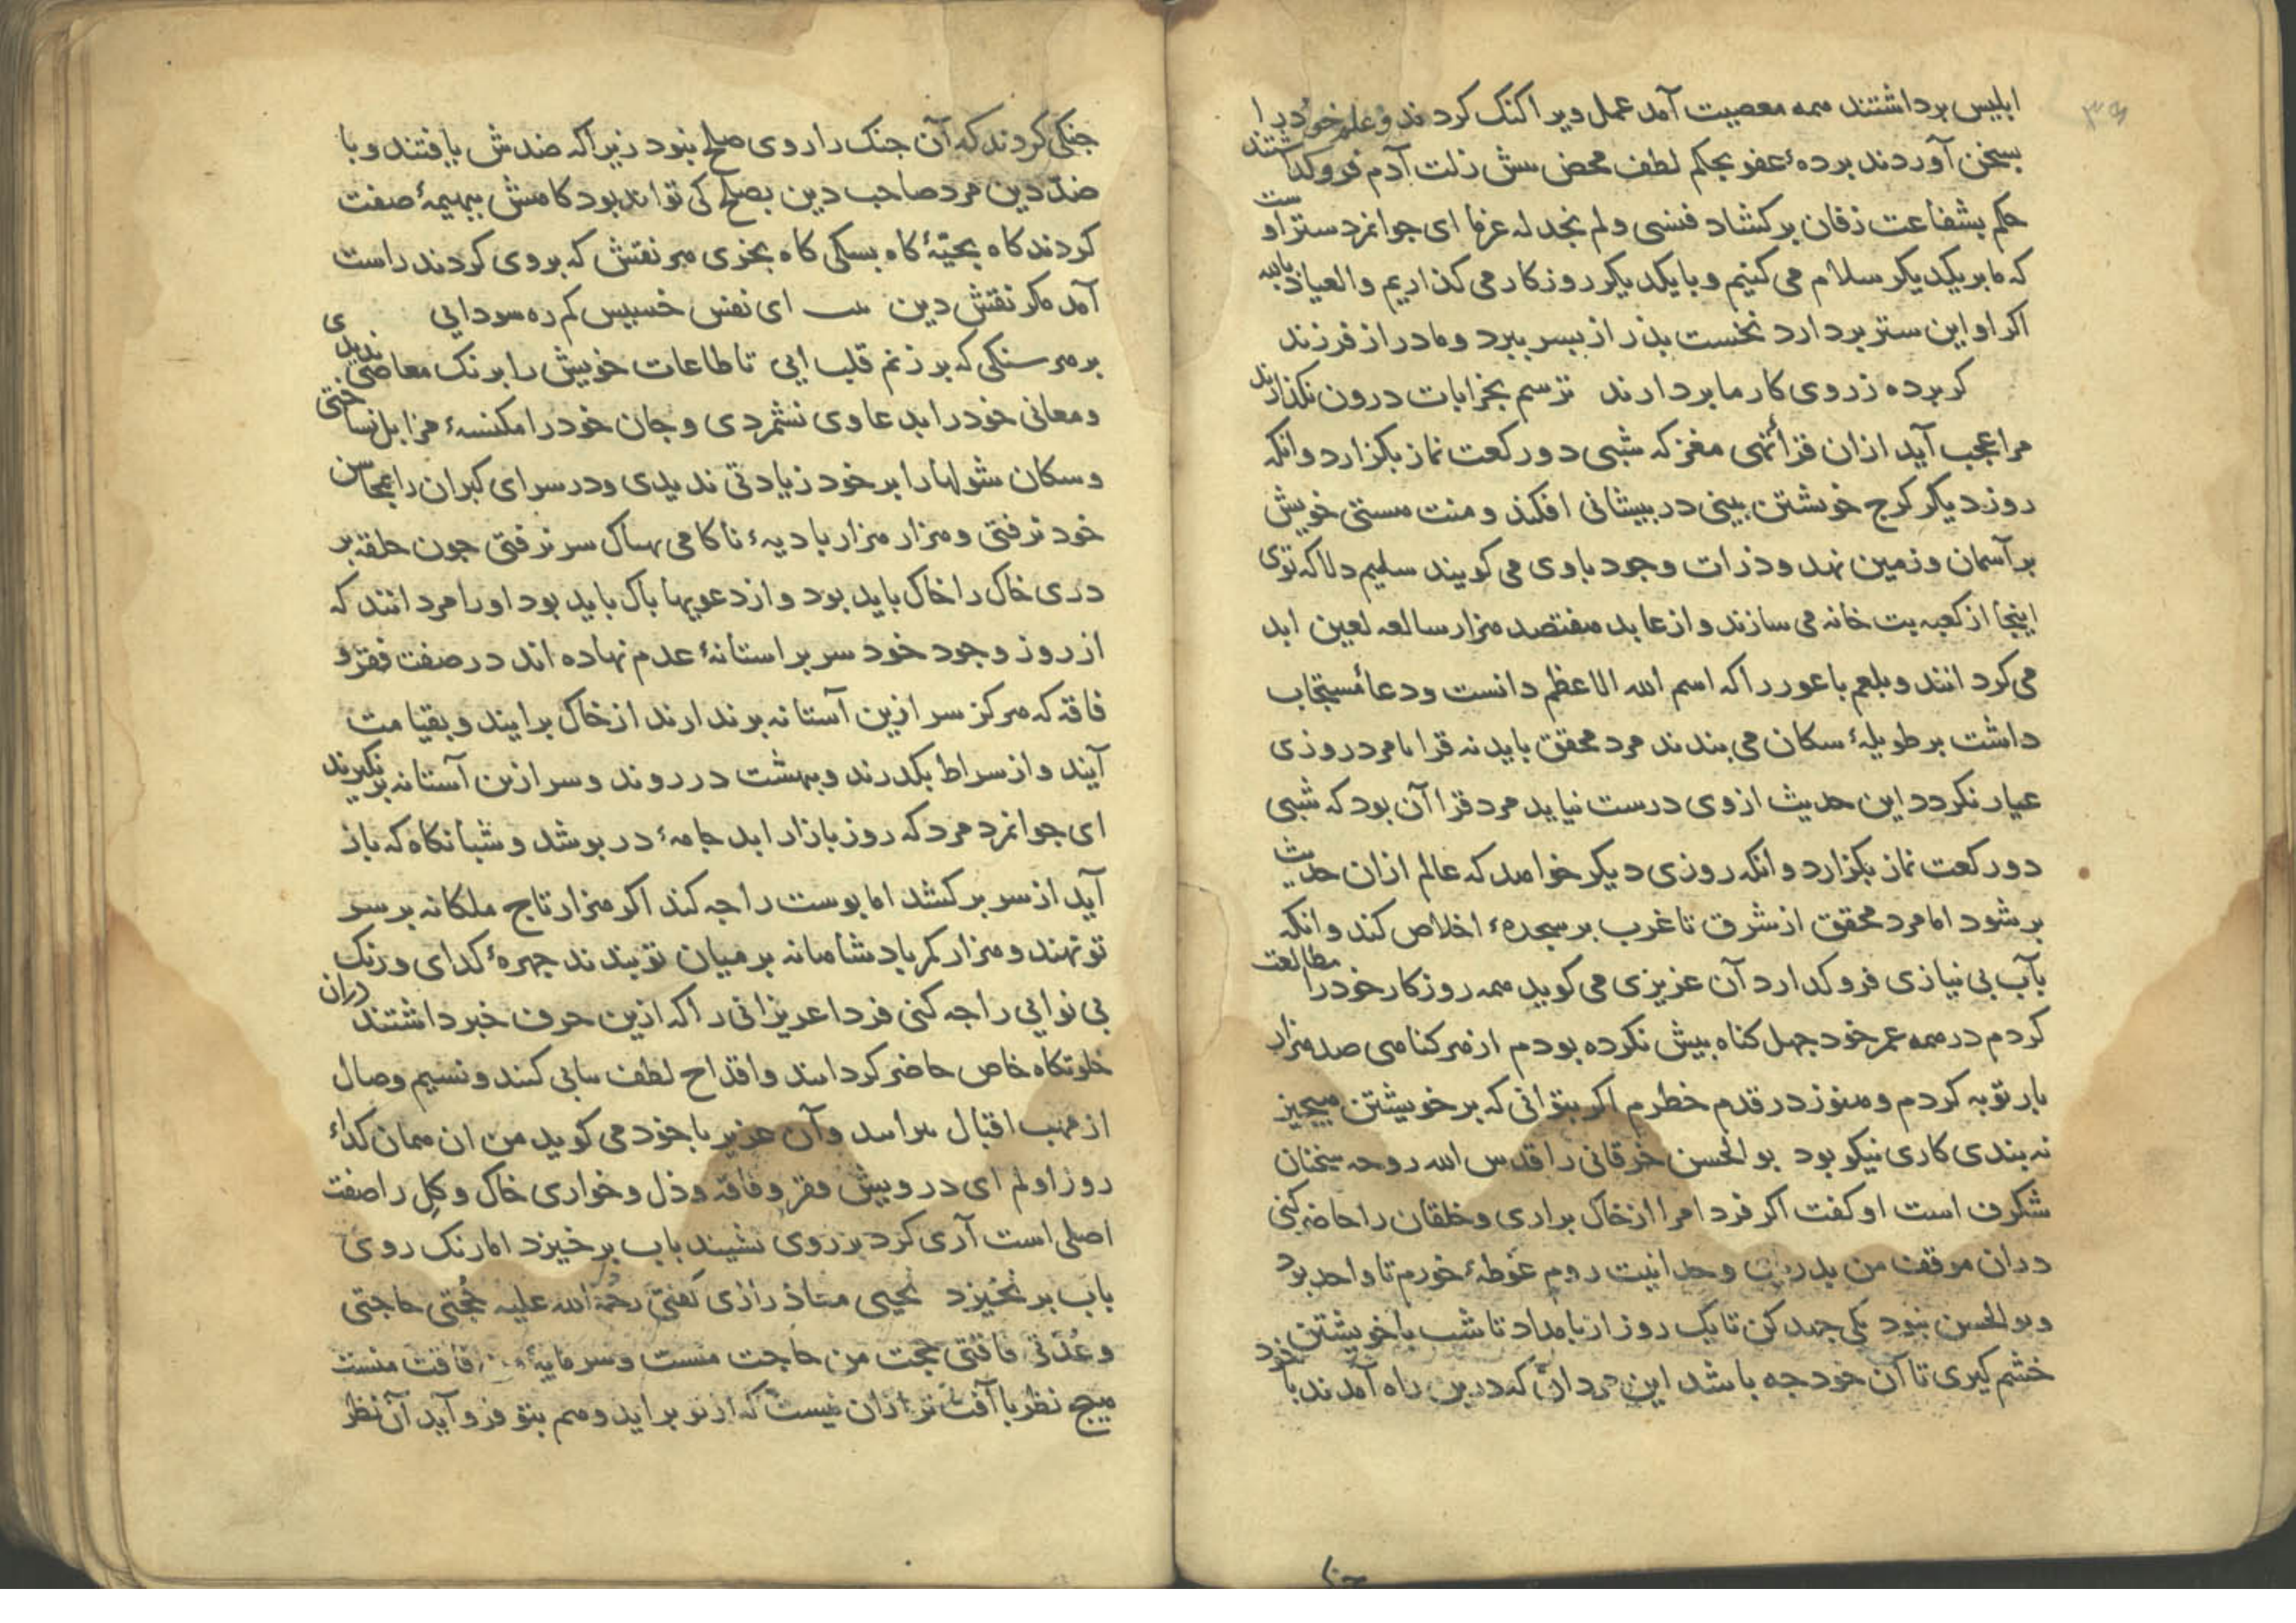 ابلیس برداشتند همه معصیت آمد عمل ویرا کنک کردند و علم خود را
بسخن آوردند برده عفو بحکم لطف محض پیش زلت آدم فروکذاشتند
حکم بشفاعت زفان برکشاد فنسی ولم نجد له عزما ای جوانمرد ستر اوست
که ما بریکدیکر سلام می کنیم و با یکدیکر روزکار می کذاریم والعیاذ بالله
اکر او این ستر بردارد نخست پذر از پسر ببرد و مادر از فرزند
کر پرده ز روی کار ما بردارند ترسم بخرابات درون نکذارند
مرا عجب آید ازان قرأ تهی مغز که شبی دو رکعت نماز بکزارد وانکه
روز دیکر کرج خوشتن بینی در پیشانی افکند و منت هستی خویش
بر آسمان و زمین نهد و ذرات وجود با وی می کویند سلیم دلا که توی
اینجا از کعبه بت خانه می سازند و از عابد هفتصد هزار ساله لعین ابد
می کردانند و بلعم باعور را که اسم الله الاعظم دانست و دعا مستجاب
داشت بر طویلهٔ سکان می بندند مرد محقق باید نه قرا تا مرد روزی
عیار نکردد این حدیث از وی درست نیاید مرد قرا آن بود که شبی
دو رکعت نماز بکزارد وانکه روزی دیکر خواهد که عالم ازان حدیث
پر شود اما مرد محقق از شرق تا غرب پر سجدهٔ اخلاص کند وانکه
بآب بی نیازی فرو کدارد آن عزیزی می کوید همه روزکار خود را مطالعت
کردم در همه عمر خود جهل کناه بیش نکرده بودم از هر کناهی صد هزار
بار توبه کردم و هنوز در قدم خطرم اکر بتوانی که بر خویشتن هیچیز
نه بندی کاری نیکو بود بوالحسن خرقانی را قدس الله روحه سخنان
شکرف است او کفت اکر فردا مرا از خاک براری و خلقان را حاضر کنی
دران موقف من بدریای وحدانیت روم غوطهٔ خورم تا واحد بود
و بوالحسن نبود یکی جهد کن تا یک روز از بامداد تا شب با خویشتن
خشم کیری تا آن خود جه باشد این مردان که درین راه آمدند با خود
جنکی کردند که آن جنک را روی صلح نبود زیرا که ضد ش یافتند و با
ضد دین مرد صاحب دین بصلح کی تواند بود کاهش ببهیمهٔ صفت
کردند کاه بحیّهٔ کاه بسکی کاه بخری هر نقش که بر وی کردند راست
آمد مکر نقش دین ای نفس خسیس کم ره سودایی
بر هر سنکی که بر زنم قلب ایی تا طاعات خویش را برنک معاصی ندیدی
و معانی خود را بدعاوی نشمردی و جان خود را مکنسهٔ مزابل نساختی
و سکان شولها را بر خود زیادتی ندیدی و در سرای کبران را محاسن
خود نرفتی و هزار هزار بادیهٔ ناکامی بسر نرفتی جون حلقه بر
دری خاک را خاک باید بود و از دعویها پاک باید بود او را مرد انند که
از روز وجود خود سر بر استانهٔ عدم نهاده اند در صفت فقر و
فاقه که هرکز سر ازین آستانه برندارند از خاک برایند و بقیامت
آیند و از سراط بکدرند و ببهشت در روند و سر ازین آستانه برنکیرند
ای جوانمرد مرد که روز بازار اید جامهٔ در پوشد و شبانکاه که باز
آید از سر برکشد اما پوست را جه کند اکر هزار تاج ملکانه بر سر
تو نهند و هزار کمر پادشاهانه بر میان تو بندند جهرهٔ کدای و رنک
بی نوایی را جه کنی فردا عزیزانی را که ازین حرف خبر داشتند دران
خلوتکاه خاص حاضر کردانند و اقداح لطف کنند و نسیم وصال
از مهب اقبال و آن عزیز با خود می کوید من ان همان کداء
روز اولم ای درویش و فقر و فاقه و ذل و خواری خاک و کل را صفت
اصلی است آری کرد بر روی نشیند باب بر خیزد اما رنک روی
باب بر نخیزد یحیی معاذ رازی کفتی رحمة الله علیه حجتی حاجتی
و عدتی فاقتی حجت من حاجت منست و سرمایهٔ من فاقت منست
هیج نظر با آفت تر ازان نیست که از تو براید و هم بتو فرو آید آن نظر